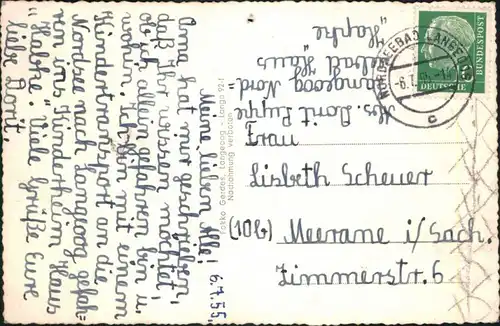 Meine lieben Alle! 6.7.55.
Oma hat mir geschrieben,
daß Ihr wissen möchtet,
ob ich allein gefahren bin u.
warum. Ich bin mit einem
Kindertransport an die
Nordsee nach Langeoog gefah=
ren ins Kinderheim Haus
"Habke". Viele Grüße Eure
liebe Dorit.
Fokko Gerdes, Langeoog - Lango 921
Nachahmung verboten
Abs. Dorit
Langeoog Nord=
seebad Haus
"Hapke"
NORDSEEBAD LANGEOOG
-6.7.55
c
DEUTSCHE
BUNDESPOST
Frau
Lisbeth Scheuer
(10b) Meerane i/Sach.
Zimmerstr. 6